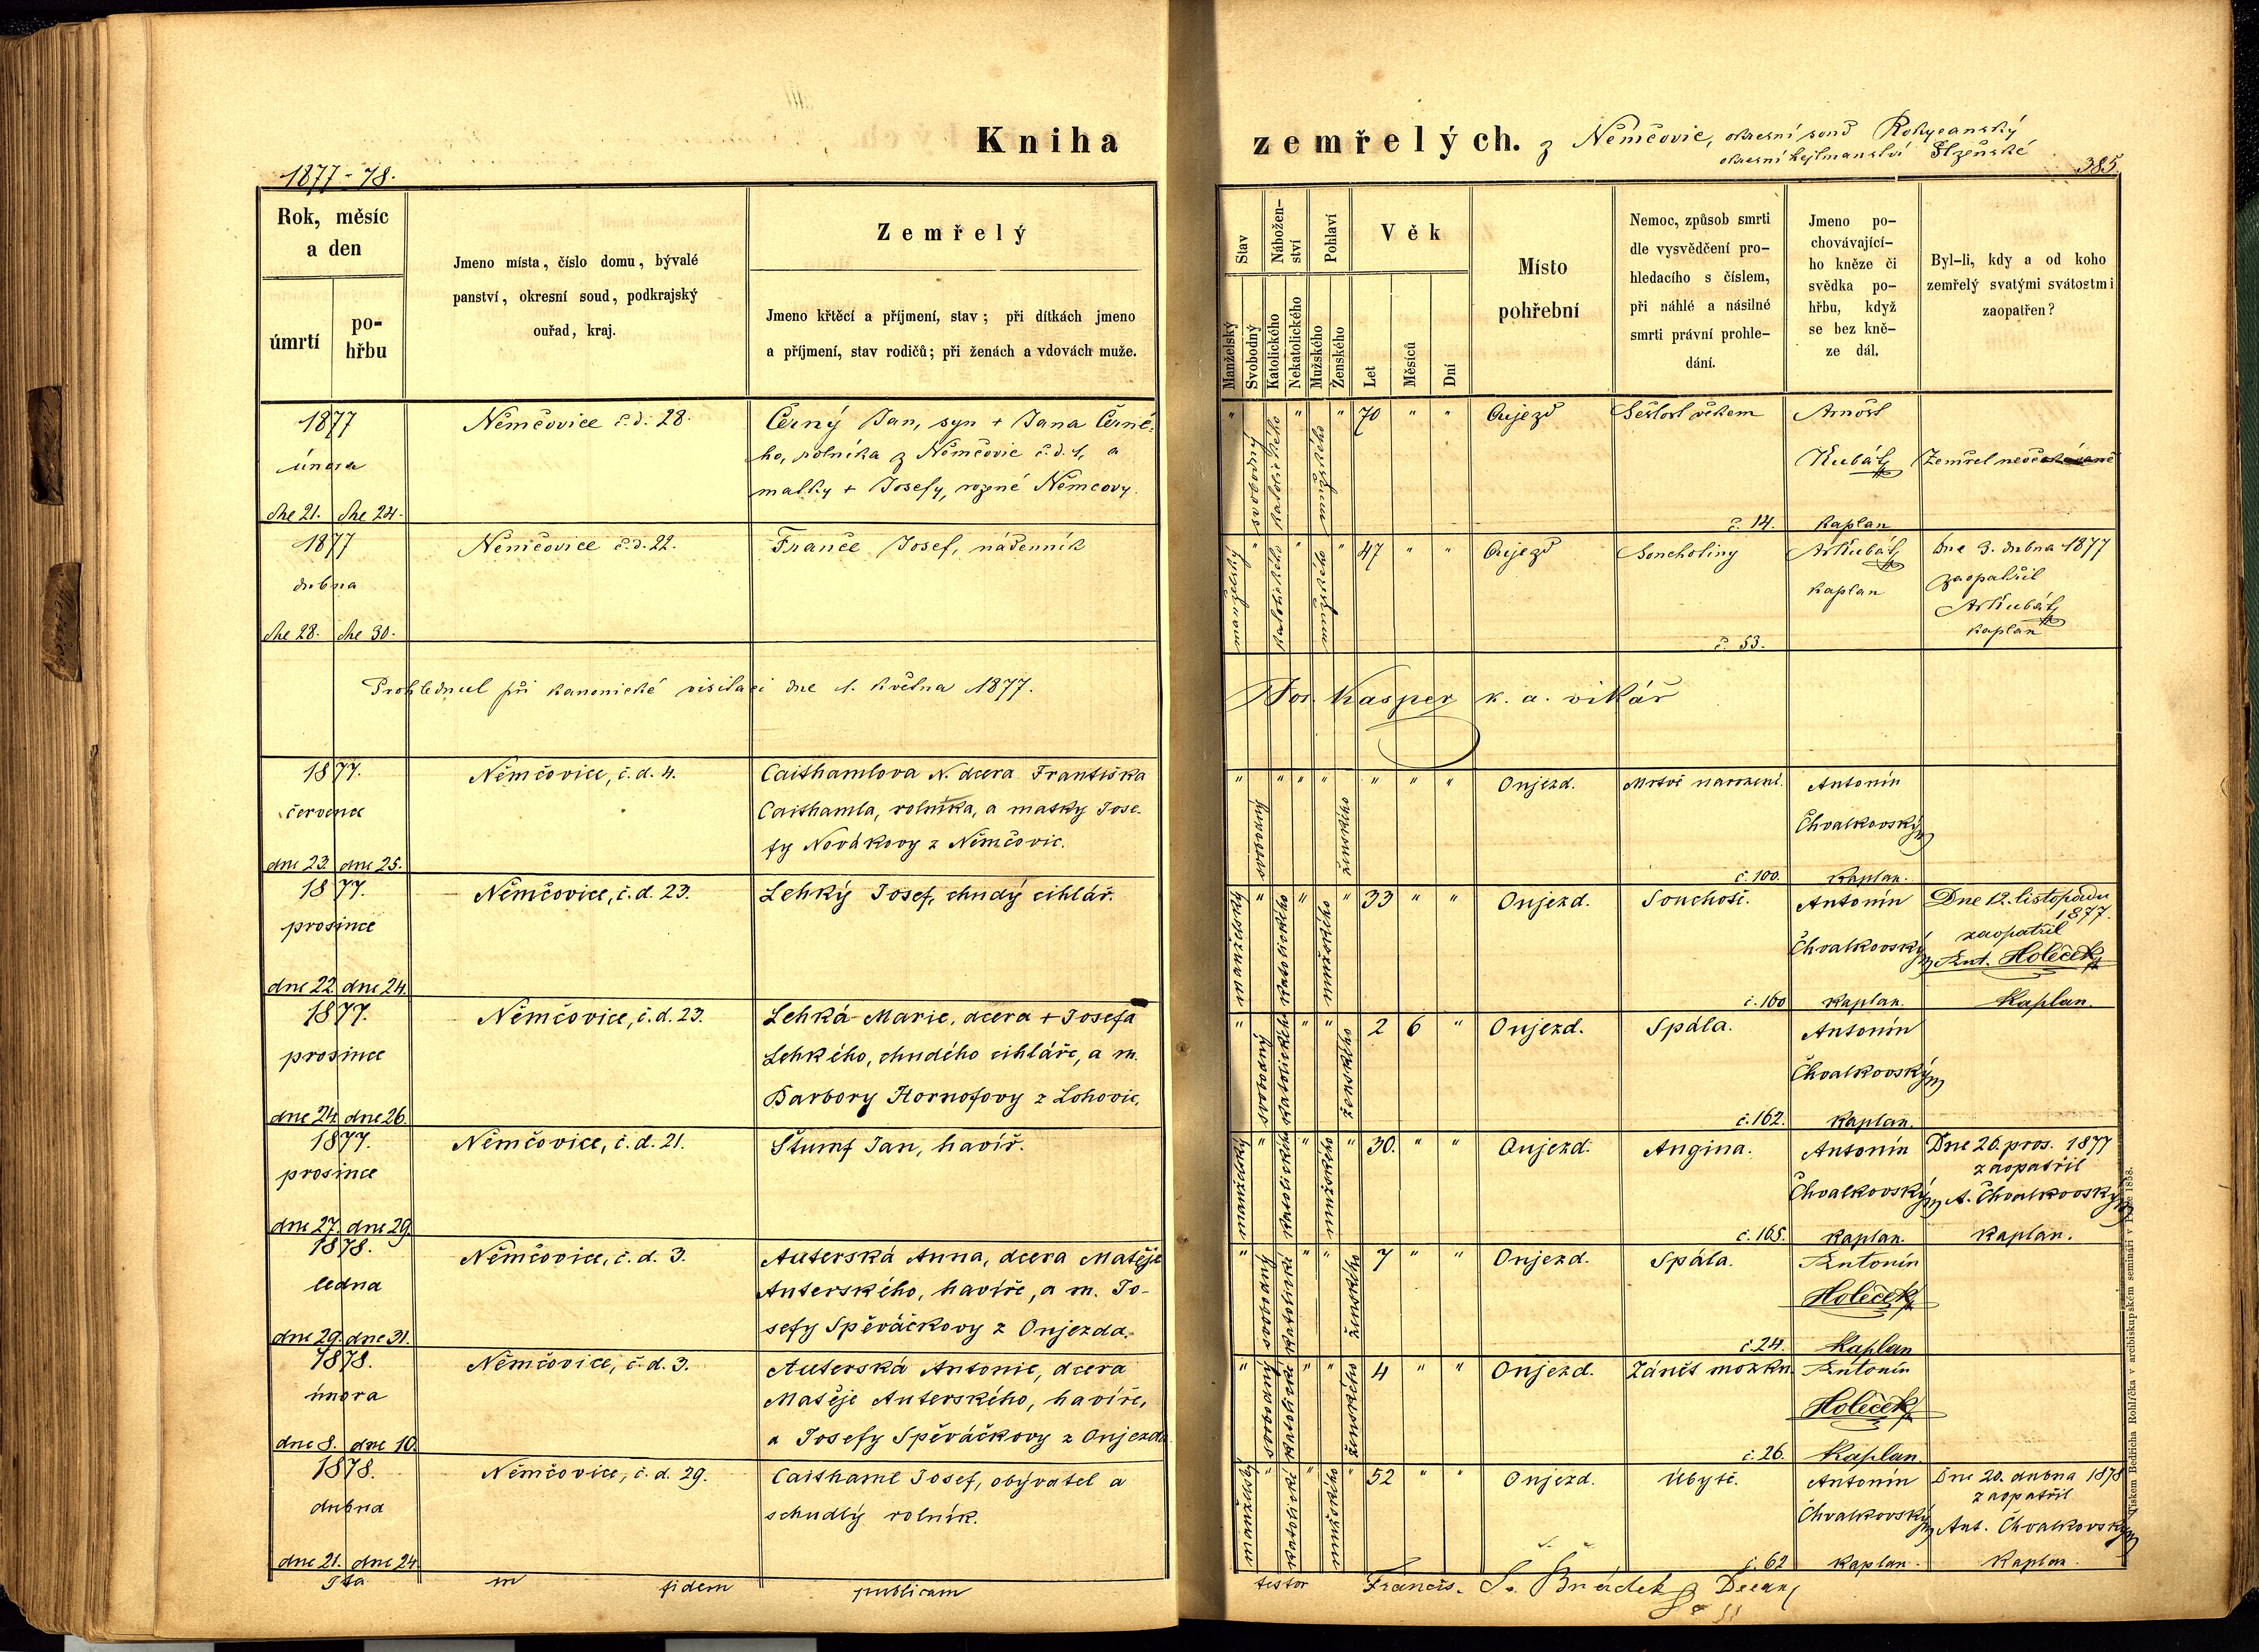 Kniha zemřelých. z Němčovic, okresní soud Rokycanský
okresní hejtmanství Plzeňské
1877-78.
385.
Rok, měsíc
a den
úmrtí
po-
hřbu
Jmeno místa, číslo domu, bývalé
panství, okresní soud, podkrajský
ouřad, kraj.
Zemřelý
Jmeno křtěcí a příjmení, stav; při dítkách jmeno
a příjmení, stav rodičů; při ženách a vdovách muže.
Stav
Manželský
Svobodný
Nábožen-
ství
Katolického
Nekatolického
Pohlaví
Mužského
Ženského
Věk
Let
Měsíců
Dní
Místo
pohřební
Nemoc, způsob smrti
dle vysvědčení pro-
hledacího s číslem,
při náhlé a násilné
smrti právní prohle-
dání.
Jmeno po-
chovávající-
ho kněze či
svědka po-
hřbu, když
se bez kně-
ze dál.
Byl-li, kdy a od koho
zemřelý svatými svátostmi
zaopatřen?
1877
února
dne 21. dne 24.
Němčovice č.d. 28.
Černý Jan, syn + Jana Černé-
ho, rolníka z Němčovic č.d. 1, a
matky + Josefy, rozené Němcovy.
" svobodný katolického " mužského " 70 " "
Oujezd
Sešlost věkem
č. 14.
Arnošt
Kubát
kaplan
Zemřel neočekávaně
1877
dubna
dne 28. dne 30.
Němčovice č.d. 22.
Franče Josef, nádenník
manželský " katolického " mužského " 47 " "
Oujezd
Souchotiny
č. 53.
ArKubát
kaplan
Dne 3. dubna 1877
zaopatřil
ArKubát
kaplan
Prohlednul při kanonické visitaci dne 1. května 1877.
Jos. Kasper k. a. vikář
1877.
července
dne 23. dne 25.
Němčovice, č. d. 4.
Caithamlova N. dcera Františka
Caithamla, rolníka, a matky Jose-
fy Novákovy z Němčovic.
" svobodný " " " ženského " " "
Oujezd.
Mrtvě narození.
č. 100.
Antonín
Chvalkovský
kaplan.
1877.
prosince
dne 22. dne 24.
Němčovice, č. d. 23.
Lehký Josef, chudý cihlář.
manželský " katolického " mužského " 33 " "
Oujezd.
Souchoť.
č. 160
Antonín
Chvalkovský
kaplan.
Dne 12. listopadu
1877.
zaopatřil
Ant. Holeček
Kaplan.
1877.
prosince
dne 24. dne 26.
Němčovice, č. d. 23.
Lehká Marie, dcera + Josefa
Lehkého, chudého cihláře, a m.
Barbory Hornofovy z Lohovic.
" svobodný katolického " " ženského 2 6 "
Oujezd.
Spála.
č. 162.
Antonín
Chvalkovský
kaplan.
1877.
prosince
dne 27. dne 29.
Němčovice, č. d. 21.
Štumf Jan, havíř.
manželský " katolického " mužského " 30. " "
Oujezd.
Angina.
č. 165.
Antonín
Chvalkovský
kaplan.
Dne 26. pros. 1877
zaopatřil
A. Chvalkovský
kaplan.
1878.
ledna
dne 29. dne 31.
Němčovice, č. d. 3.
Auterská Anna, dcera Matěje
Auterského, havíře, a m. Jo-
sefy Spěváčkovy z Oujezda.
" svobodný katolické " " ženského 7 " "
Oujezd.
Spála.
č. 24.
Antonín
Holeček
Kaplan
1878.
února
dne 8. dne 10.
Němčovice, č. d. 3.
Auterská Antonie, dcera
Matěje Auterského, havíře,
a Josefy Spěváčkovy z Oujezda.
" svobodný katolické " " ženského 4 " "
Oujezd.
Zánět mozku.
č. 26.
Antonín
Holeček
Kaplan.
1878.
dubna
dne 21. dne 24.
Němčovice, č. d. 29.
Caithaml Josef, obývatel a
schudlý rolník.
manželský " katolické " mužského " 52 " "
Oujezd.
Úbytě.
č. 62
Antonín
Chvalkovský
kaplan.
Dne 20. dubna 1878
zaopatřil
Ant. Chvalkovský
Kaplan.
Ita in fidem publicam testor Francis.
Tiskem Bedřicha Rohlíčka v arcibiskupském semináři v Praze 1858.